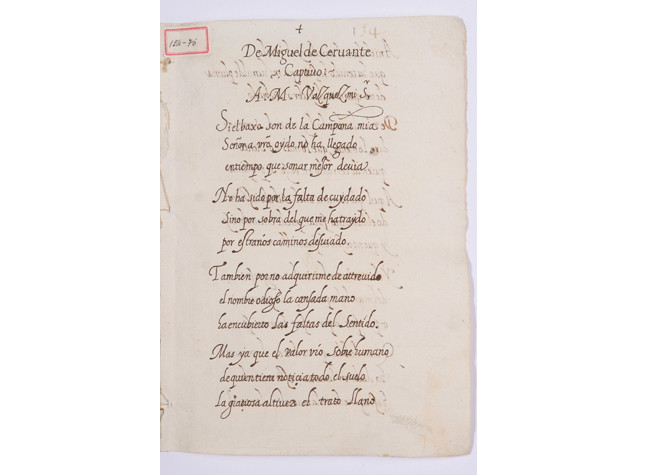 +
De Miguel de Ceruante
Captiuo:
A: M: Vazquez mi Sr
Si el baxo son de la Çampoña mia
Señor a vro oydo no ha llegado
en tiempo que sonar mejor deuia
No ha sido por la falta de cuydado
Sino por sobra del que me ha traydo
por estraños caminos desuiado.
Tambien por no adquirirme de attreuido
el nombre odioso la cansada mano
ha encubierto las faltas del Sentido.
Mas ya que el valor vro sobre humano
de quien tiene noticia todo el suelo
la graçiosa altiuez el trato llano